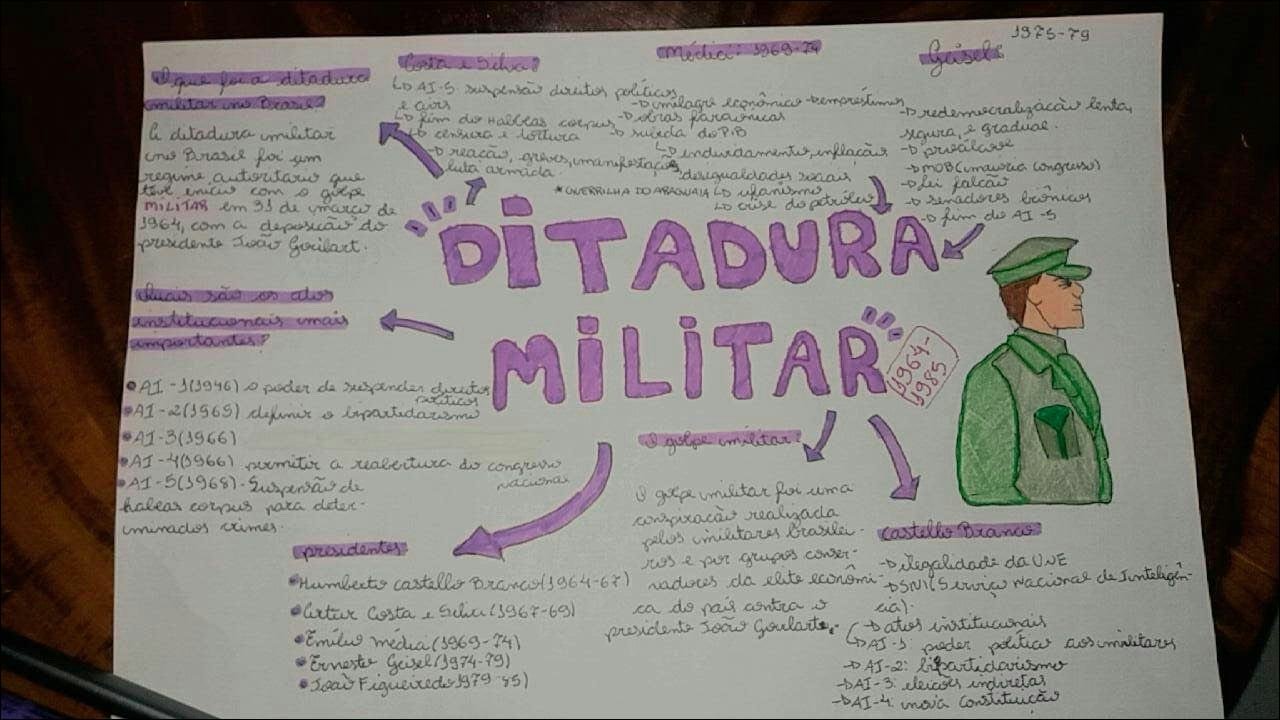 O que foi a ditadura
militar no Brasil?
A ditadura militar
no Brasil foi um
regime autoritário que
teve início com o golpe
MILITAR em 31 de março de
1964, com a deposição do
presidente João Goulart.
Quais são os atos
institucionais mais
importantes?
AI-1(1946) o poder de suspender direitos
políticos
AI-2(1965) definir o bipartidarismo
AI-3(1966)
AI-4(1966) permitir a reabertura do congresso
nacional
AI-5(1968)-Suspensão de
habeas corpus para deter-
minados crimes.
Costa e Silva:
AI-5: suspensão direitos políticos
e civis
fim do Habeas corpus
censura e tortura
reação, greves, manifestações
luta armada.
*GUERRILHA DO ARAGUAIA
Médici: 1969-74
milagre econômico empréstimos
obras faraônicas
subida do PIB
endividamento, inflação
desigualdades sociais
ufanismo
crise do petróleo
Geisel: 1975-79
redemocratização lenta,
segura, e gradual.
proálcool
MDB (maioria congresso)
lei falcão
senadores biônicos
fim do AI-5
DITADURA
MILITAR
1964-
1985
presidentes
Humberto castello Branco(1964-67)
Artur Costa e Silva(1967-69)
Emílio médici(1969-74)
Ernesto Geisel(1974-79)
João Figueiredo 1979-85)
O golpe militar:
O golpe militar foi uma
conspiração realizada
pelos militares brasilei-
ros e por grupos conser-
vadores da elite econômi-
ca do país contra o
presidente João Goulart.
Castello Branco
ilegalidade da UNE
SNI (Serviço Nacional de Inteligên-
cia).
atos institucionais
AI-1: poder político aos militares
AI-2: bipartidarismo
AI-3: eleições indiretas
AI-4: nova constituição